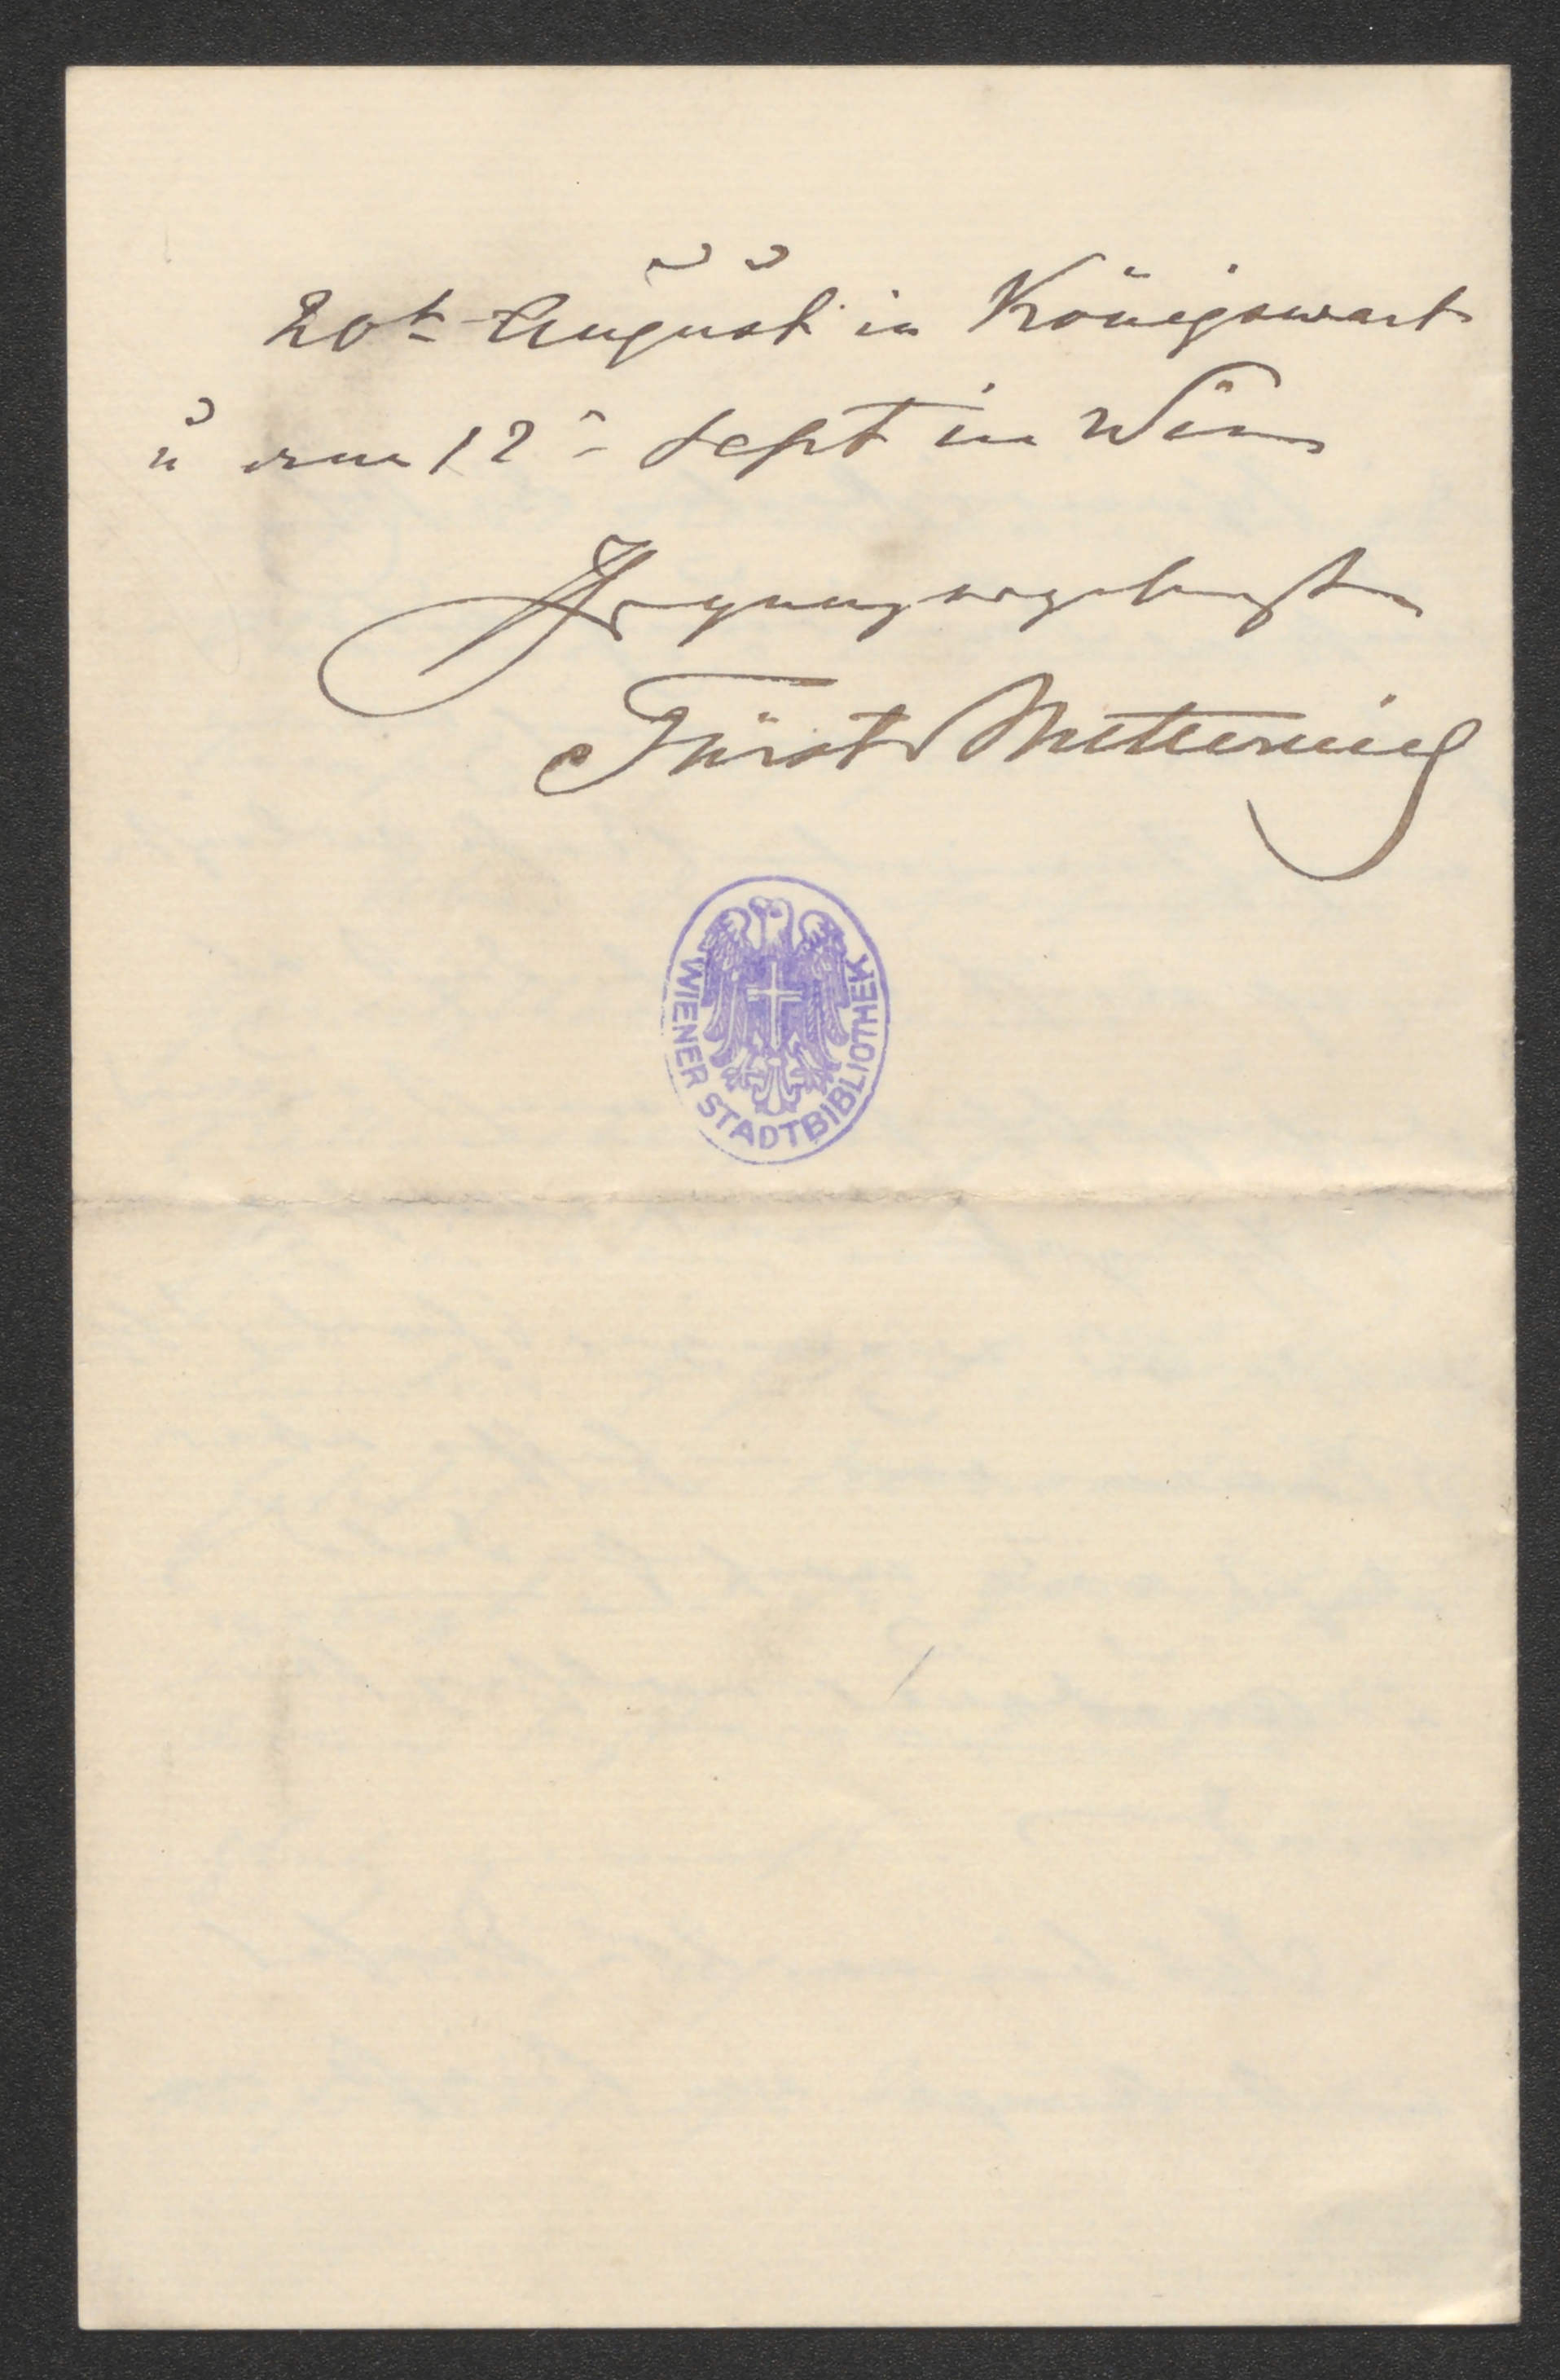 20t August in Königswart
u vom 12n Sept in Wien
Ihr ganz ergebenster
Fürst Metternich
WIENER STADTBIBLIOTHEK